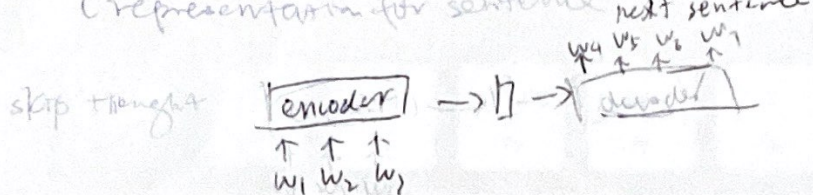 (representation for sentence
next sentence
w4 w5 w6 w7
skip thought encoder decoder
w1 w2 w3